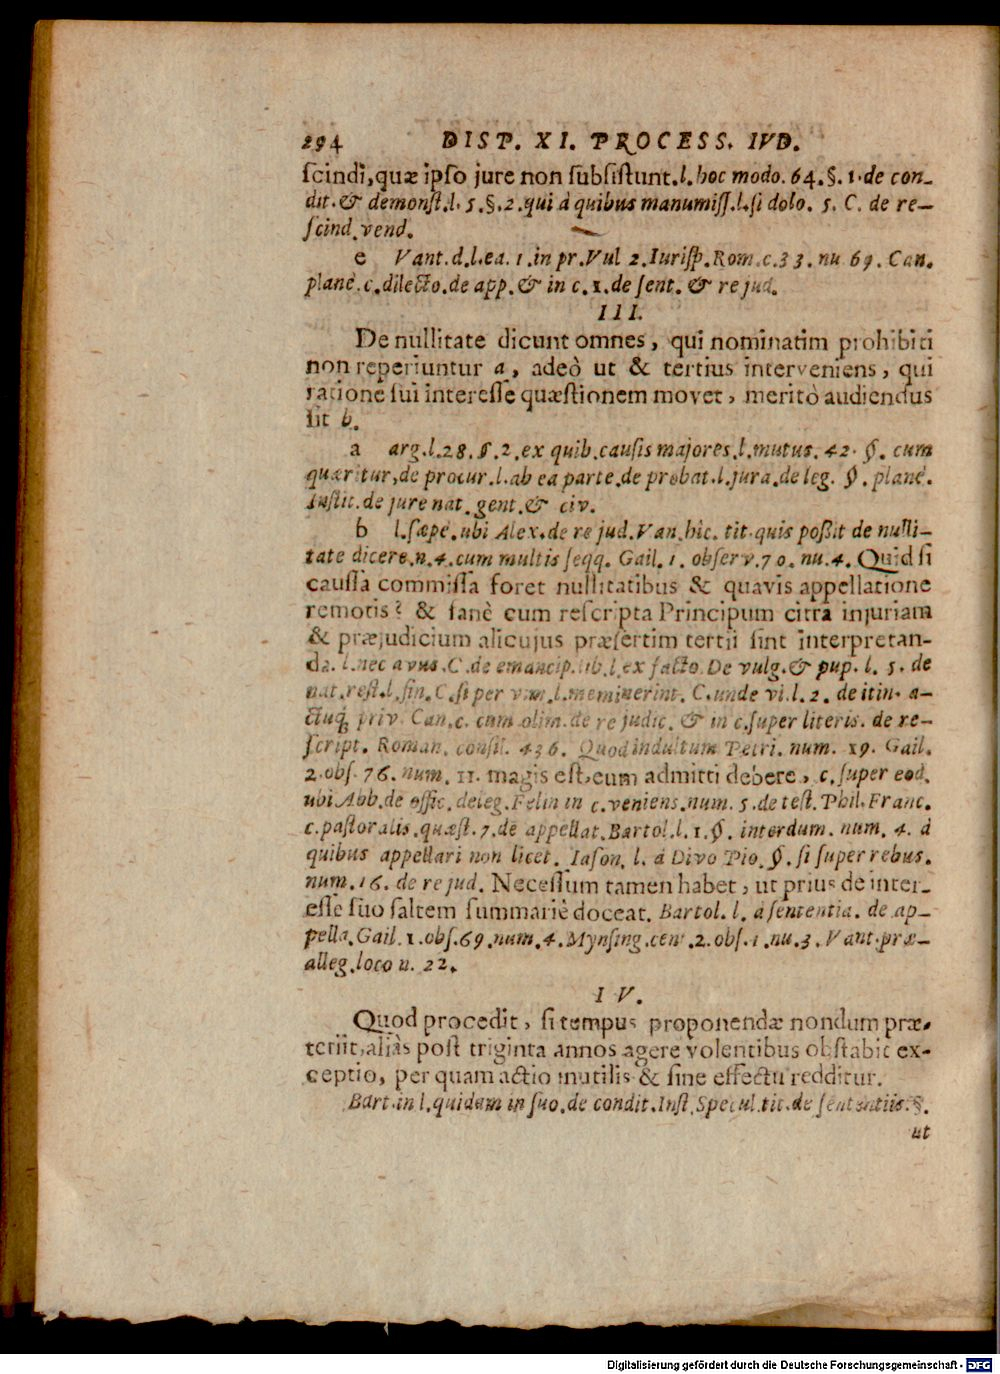 294 DIST. XI. PROCESS. IVD.
ſcindi, quæ ipſo jure non ſubſiſtunt. l. hoc modo. 64. §. 1. de con-
dit. & demonſt. l. 5. §. 2. qui à quibus manumiſſ. l. ſi dolo. 5. C. de re-
ſcind. vend.
e Vant. d. l. ea. 1. in pr. Vul 2. Iuriſp. Rom. c. 33. nu 69. Can.
planè. c. dilecto. de app. & in c. 1. de ſent. & re jud.
III.
De nullitate dicunt omnes, qui nominatim prohibiti
non reperiuntur a, adeò ut & tertius interveniens, qui
ratione ſui intereſſe quæſtionem movet, meritò audiendus
ſit b.
a arg. l. 28. §. 2. ex quib. cauſis majores. l. mutus. 42. §. cum
quæritur, de procur. l. ab ea parte. de probat. l. jura. de leg. §. planè.
Inſtit. de jure nat. gent. & civ.
b l. ſæpe. ubi Alex. de re jud. Van. hîc. tit. quis poßit de nulli-
tate dicere. n. 4. cum multis ſeqq. Gail. 1. obſerv. 70. nu. 4. Quid ſi
cauſſa commiſſa foret nullitatibus & quavis appellatione
remotis? & ſanè cum reſcripta Principum citra injuriam
& præjudicium alicujus præſertim tertii ſint interpretan-
da. l. nec avus. C. de emancip. lib. l. ex facto. De vulg. & pup. l. 5. de
nat. reſt. l. fin. C. ſi per vim. l. meminerint. C. unde vi. l. 2. de itin. a-
ctuq́; priv. Can. c. cum olim. de re judic. & in c. ſuper literis. de re-
ſcript. Roman. conſil. 436. Quod indultum Petri. num. 19. Gail.
2. obſ. 76. num. 11. magis eſt, eum admitti debere, c. ſuper eod.
ubi Abb. de offic. deleg. Felin in c. veniens. num. 5. de teſt. Phil. Franc.
c. paſtoralis. quæſt. 7. de appellat. Bartol. l. 1. §. interdum. num. 4. à
quibus appellari non licet. Iaſon. l. à Divo Pio. §. ſi ſuper rebus.
num. 16. de re jud. Neceſſum tamen habet, ut prius de inter-
eſſe ſuo ſaltem ſummariè doceat. Bartol. l. à ſententia. de ap-
pella. Gail. 1. obſ. 69. num. 4. Mynſing. cent. 2. obſ. 1. nu. 3. Vant. præ-
alleg. loco n. 22.
IV.
Quod procedit, ſi tempus proponendæ nondum præ-
teriit, aliàs poſt triginta annos agere volentibus obſtabit ex-
ceptio, per quam actio inutilis & ſine effectu redditur.
Bart. in l. quidam in ſuo. de condit. Inſt. Specul tit. de ſententiis. §.
ut
Digitalisierung gefördert durch die Deutsche Forschungsgemeinschaft - DFG